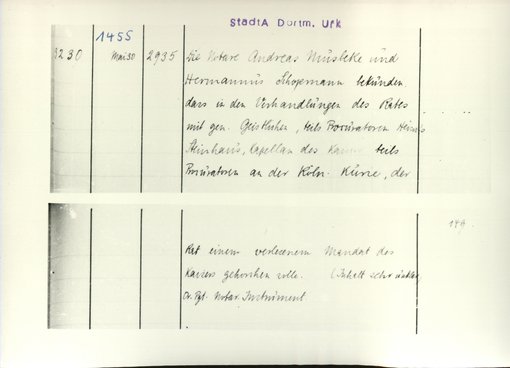 StadtA Dortm. Urk
1455
1230 Mai 30 2935 Die Notare Andreas Müsleke und
Hermannus Schopemann bekunden
dass in den Verhandlungen des Rates
mit gen. Geistlichen, teils Procuratoren
Steinhaus, Capellan des teils
Procuratoren an der Köln. Kurie, der
149
Rat einem verlesenem Mandat des
Kaisers gehorchen wolle. (Inhalt sehr
Or. Pgt. Notar. Instrument